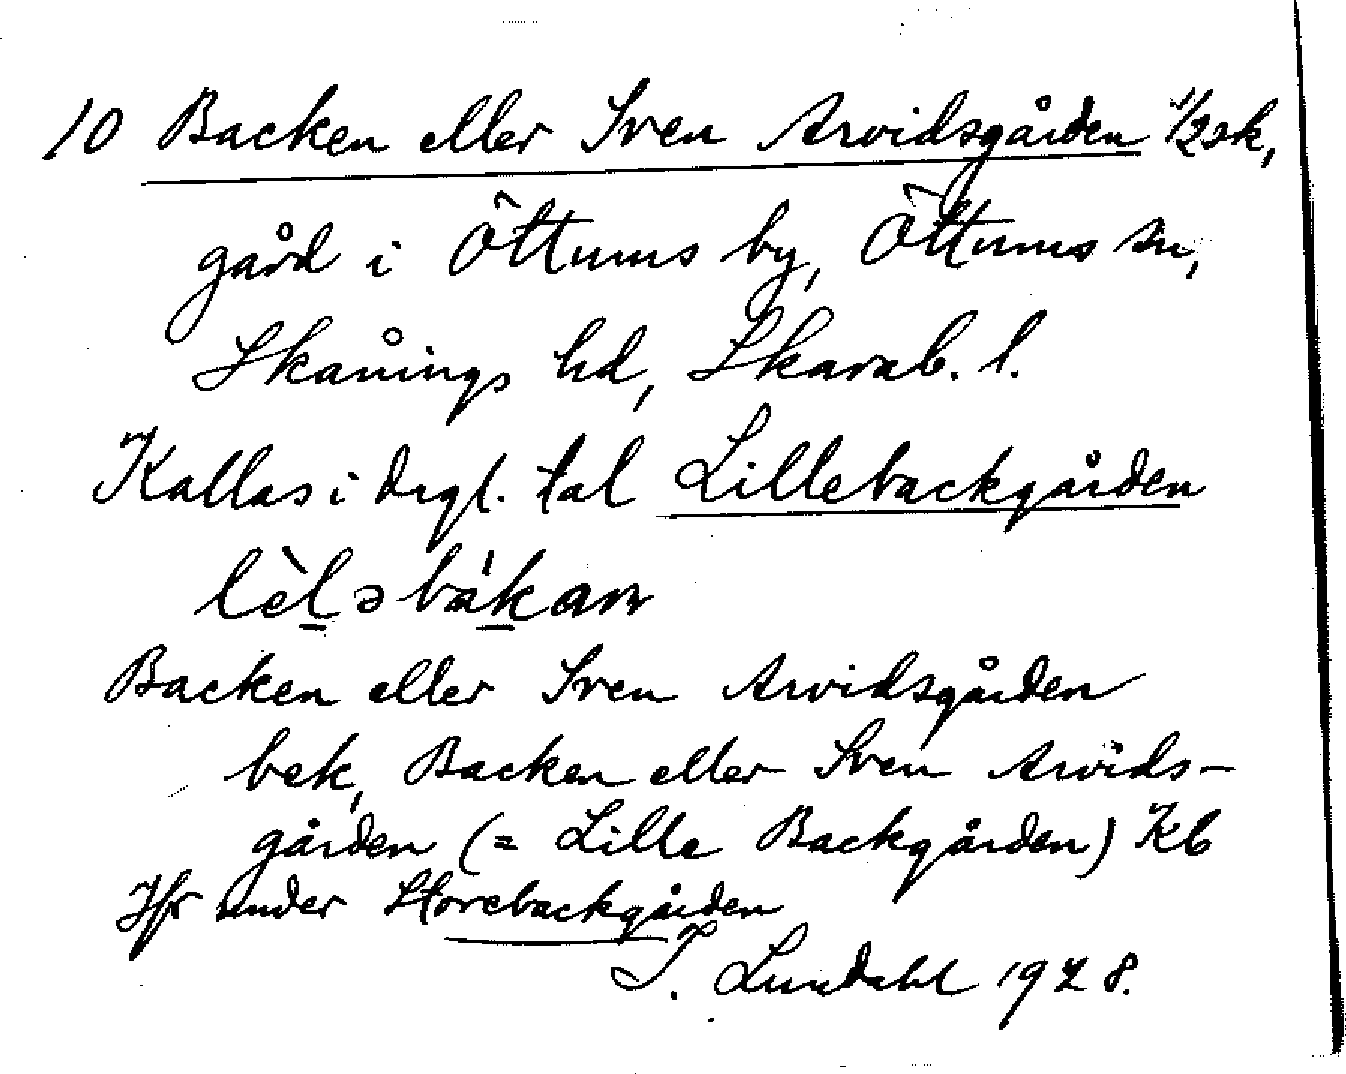 10 Backen eller Sven Arvidsgården 1/2 sk,
gård i Öttums by, Öttums sn,
Skånings hd, Skarab. l.
Kallas i dagl. tal Lillebackgården
lèləbákan
Backen eller Sven Arvidsgården
bek, Backen eller Sven Arvids-
gården (= Lilla Backgården) Kb
Jfr under Storebackgården
I. Lundahl 1928.